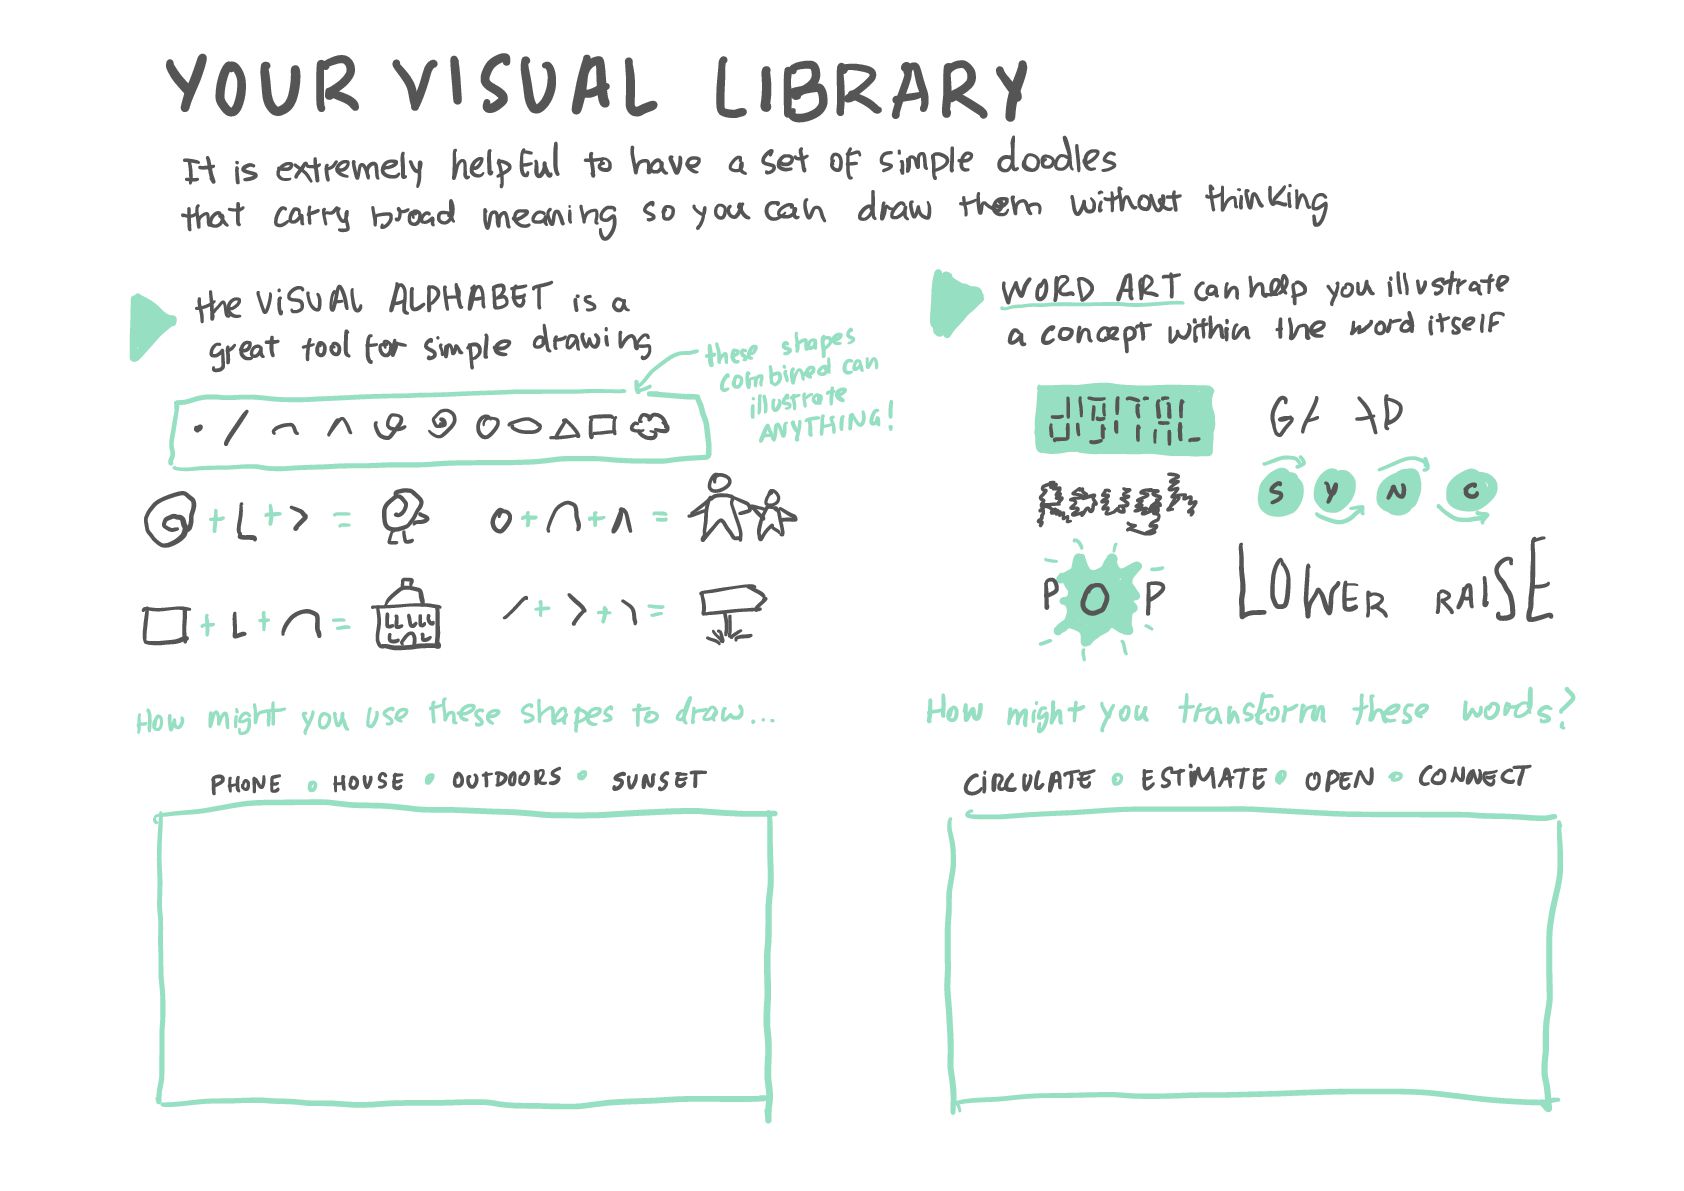 YOUR VISUAL LIBRARY
It is extremely helpful to have a set of simple doodles
that carry broad meaning so you can draw them without thinking
the VISUAL ALPHABET is a
great tool for simple drawing
these shapes
combined can
illustrate
ANYTHING!
+ + =
+ + =
+ + =
+ + =
How might you use these shapes to draw...
PHONE • HOUSE • OUTDOORS • SUNSET
WORD ART can help you illustrate
a concept within the word itself
DIGITAL
GAP
Rough
SYNC
POP
LOWER RAISE
How might you transform these words?
CIRCULATE • ESTIMATE • OPEN • CONNECT